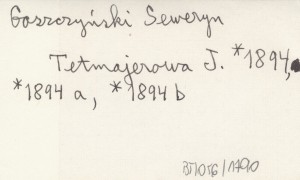 Goszczyński Seweryn
Tetmajerowa J. *1894,
*1894 a, *1894 b